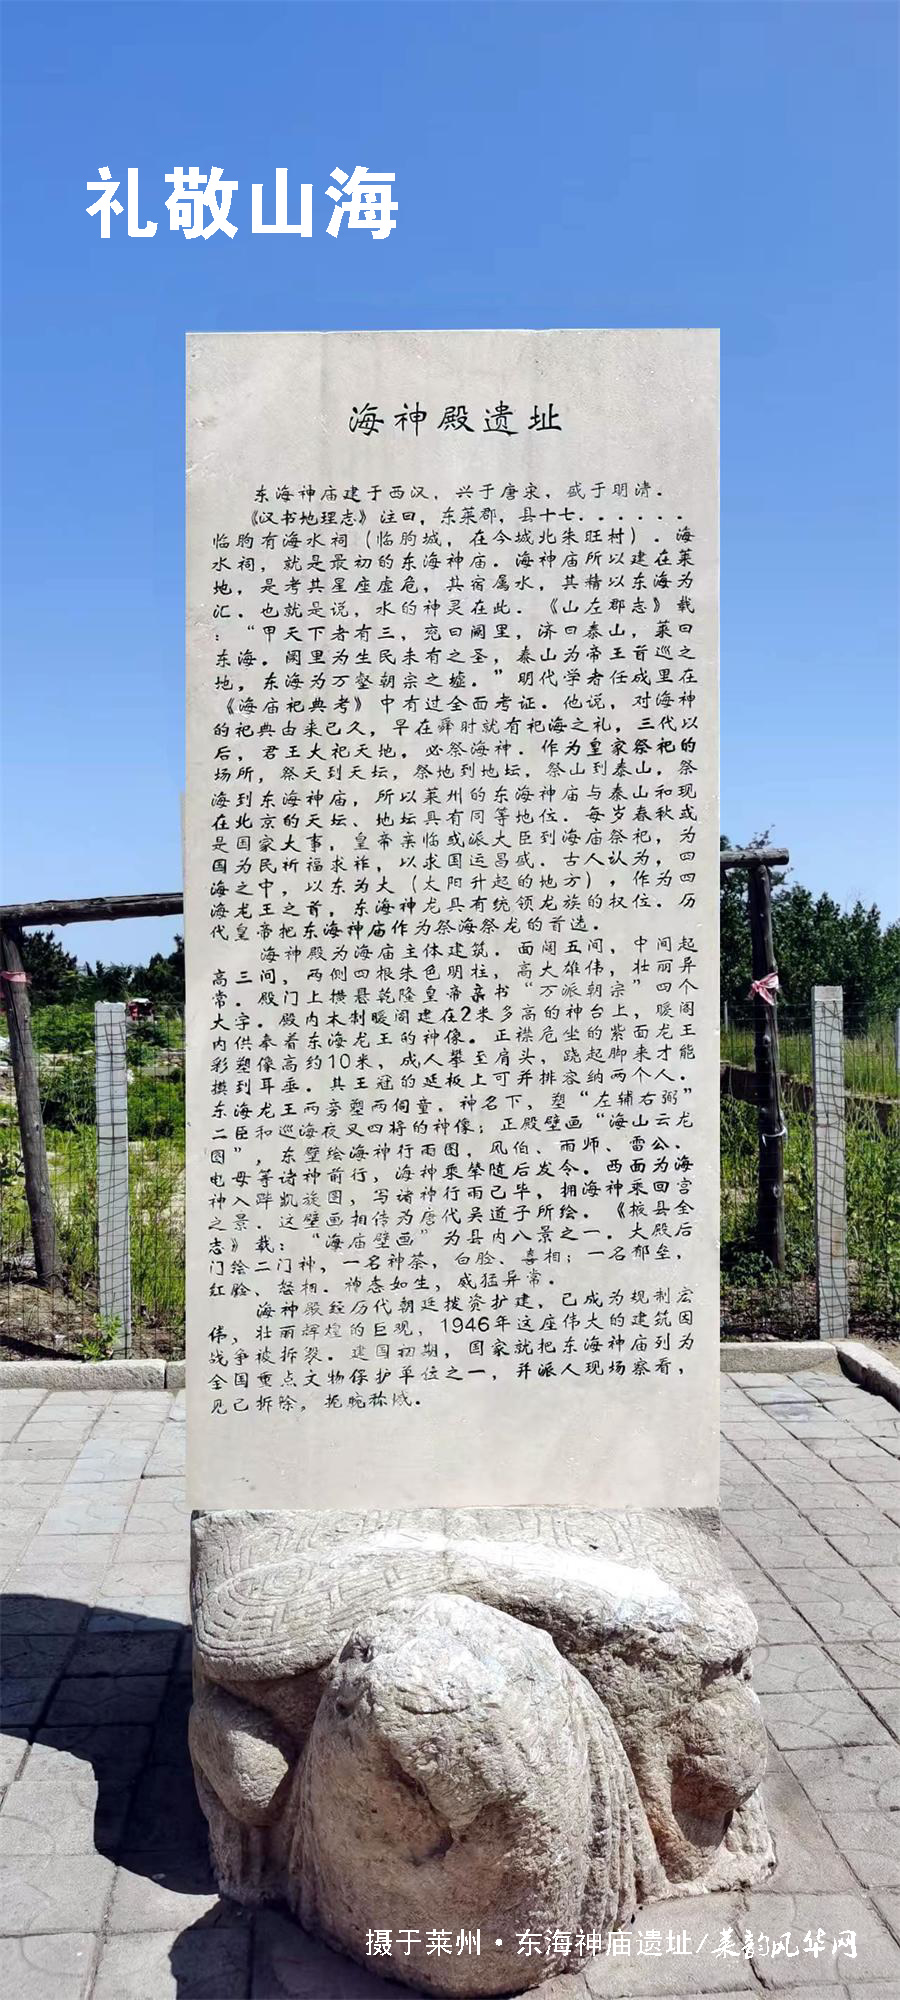 礼敬山海
海神殿遗址
东海神庙建于西汉，兴于唐宋，盛于明清．
《汉书地理志》注曰，东莱郡，县十七．．．．．．
临朐有海水祠（临朐城，在今城北朱旺村）．海
水祠，就是最初的东海神庙．海神庙所以建在莱
地，是考其星座虚危，其宿属水，其精以东海为
汇．也就是说，水的神灵在此．《山左郡志》载
：“甲天下者有三，兖曰阙里，济曰泰山，莱曰
东海．阙里为生民未有之圣，泰山为帝王首巡之
地，东海为万壑朝宗之墟．”明代学者任成里在
《海庙祀典考》中有过全面考证．他说，对海神
的祀典由来已久，早在舜时就有祀海之礼，三代以
后，君王大祀天地，必祭海神．作为皇家祭祀的
场所，祭天到天坛，祭地到地坛，祭山到泰山，祭
海到东海神庙，所以莱州的东海神庙与泰山和现
在北京的天坛、地坛具有同等地位．每岁春秋或
是国家大事，皇帝亲临或派大臣到海庙祭祀，为
国为民祈福求祚，以求国运昌盛．古人认为，四
海之中，以东为大（太阳升起的地方），作为四
海龙王之首，东海神龙具有统领龙族的权位．历
代皇帝把东海神庙作为祭海祭龙的首选．
海神殿为海庙主体建筑．面阔五间，中间起
高三间，两侧四根朱色明柱，高大雄伟，壮丽异
常．殿门上横悬乾隆皇帝亲书“万派朝宗”四个
大字．殿内木制暖阁建在2米多高的神台上，暖阁
内供奉着东海龙王的神像．正襟危坐的紫面龙王
彩塑像高约10米，成人攀至肩头，跷起脚来才能
摸到耳垂．其王冠的延板上可并排容纳两个人．
东海龙王两旁塑两侗童．神名下，塑“左辅右弼”
二臣和巡海夜叉四将的神像；正殿壁画“海山云龙
图”，东壁绘海神行雨图，风伯、雨师、雷公、
电母等诸神前行，海神乘辇随后发令．西面为海
神入跸凯旋图，写诸神行雨已毕，拥海神乘回宫
之景．这壁画相传为唐代吴道子所绘．《掖县全
志》载：“海庙壁画”为县内八景之一．大殿后
门绘二门神，一名神荼，白脸、喜相；一名郁垒，
红脸、怒相．神态如生，威猛异常．
海神殿经历代朝廷拨资扩建，已成为规制宏
伟，壮丽辉煌的巨观，1946年这座伟大的建筑因
战争被拆毁．建国初期，国家就把东海神庙列为
全国重点文物保护单位之一，并派人现场察看，
见已拆除，扼腕称憾．
摄于莱州·东海神庙遗址/莱韵风华网